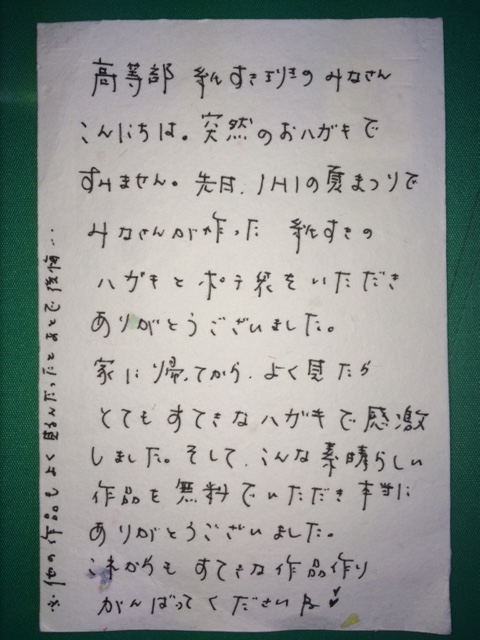 高等部 紙すき班のみなさん
こんにちは。突然のおハガキで
すみません。先日、IHIの夏まつりで
みなさんが作った 紙すきの
ハガキとポチ袋をいただき
ありがとうございました。
家に帰ってから、よく見たら
とてもすてきなハガキで感激
しました。そして、こんな素晴らしい
作品を無料でいただき本当に
ありがとうございました。
これからも すてきな作品作り
がんばってくださいね
※他の作品もよく見るんだったとあとで後悔‥